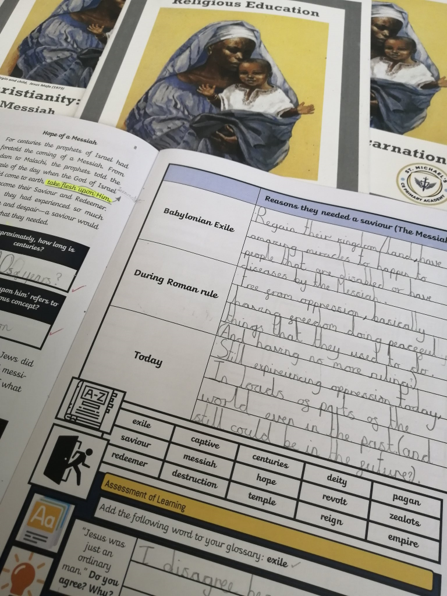 Religious Education
ristianity:
Messiah
carnation
ST. MICHAEL
Hope of a Messiah
For centuries the prophets of Israel had
foretold the coming of a Messiah. From
to Malachi, the prophets told the
of the day when the God of Israel
come to earth, take flesh upon him,
come their Saviour and Redeemer
they had experienced so much
and despair—a saviour would
what they needed.
proximately, how long is
centuries?
upon him' refers to
ous concept?
Jews did
messi-
what
Reasons they needed a saviour (The Messia
Babylonian Exile
Regain their kingdom/land, have
amazing miracles to happen to
people that are disabled or have
diseases by the Messiah.
During Roman rule
free from oppression, basically
having freedom, being peaceful
things that they used to do.
And having no more ruling!
Today
Still experiencing oppression today
In loads of parts of the
world even in the past (and
still could be in the future?).
A-Z
exile
captive
centuries
deity
pagan
saviour
messiah
hope
revolt
zealots
redeemer
destruction
temple
reign
empire
Assessment of Learning
Add the following word to your glossary: exile
Aa
"Jesus was
just an
ordinary
man." Do you
agree? Why?
I disagree